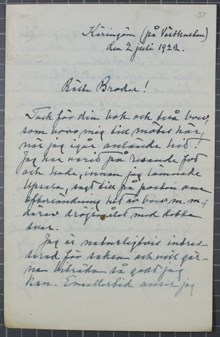 Käringön (på Västkusten)
den 2 juli 1922.
Bäste Broder!
Tack för din bok och två brev,
som voro mig till mötes här,
när jag igår anlände hit!
Jag har varit på resande fot
och hade, innan jag lämnade
Upsala, sagt till på posten om
eftersändning av brev, m. m;
därav dröjsmålet med detta
svar.
Jag är naturligtvis intres-
serad för saken och vill gär-
na biträda så godt jag
kan. Emellertid anser jag